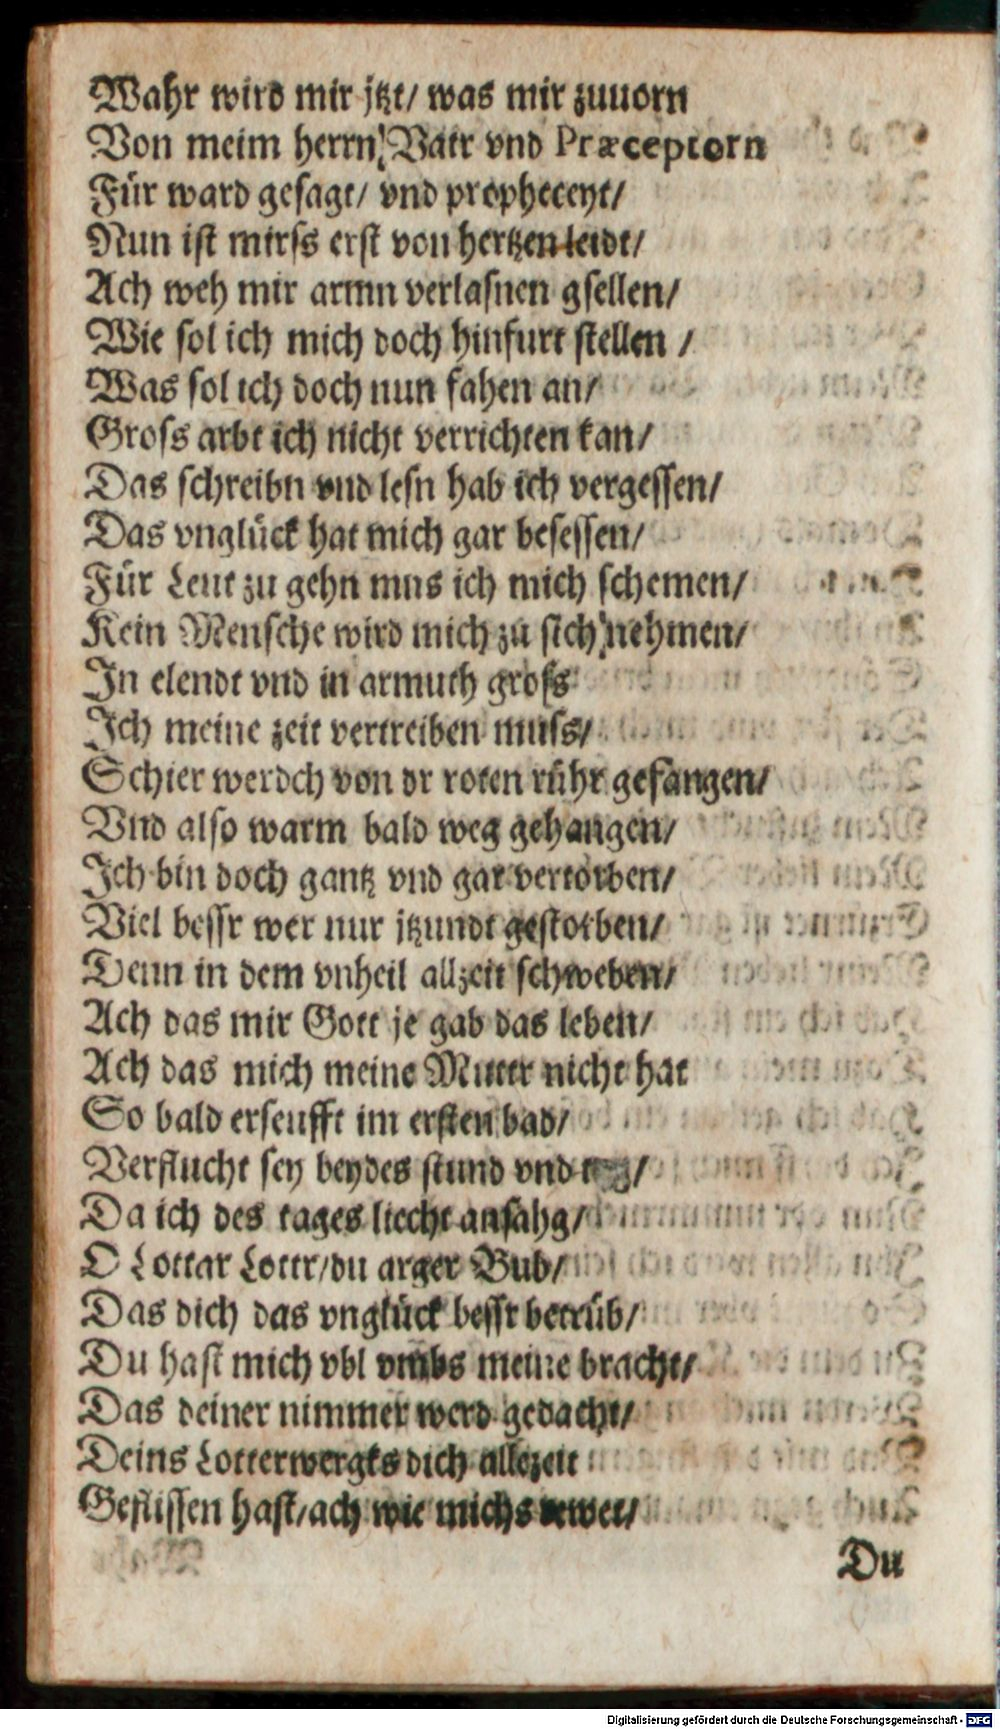 Wahr wird mir jtzt/ was mir zuuorn
Von meim herrn/ Vatr vnd Præceptorn
Für ward gesagt/ vnd propheceyt/
Nun ist mirss erst von hertzen leidt/
Ach weh mir armn verlasnen gsellen/
Wie sol ich mich doch hinfurt stellen /
Was sol ich doch nun fahen an/
Gross arbt ich nicht verrichten kan/
Das schreibn vnd lesn hab ich vergessen/
Das vnglück hat mich gar besessen/
Für Leut zu gehn mus ich mich schemen/
Kein Mensche wird mich zu sich nehmen/
In elendt vnd in armuth gross
Ich meine zeit vertreiben muss/
Schier werdch von dr roten rühr gefangen/
Vnd also warm bald weg gehangen/
Ich bin doch gantz vnd gar vertorben/
Viel bessr wer nur jtzundt gestorben/
Denn in dem vnheil allzeit schweben/
Ach das mir Gott je gab das leben/
Ach das mich meine Muttr nicht hat
So bald erseufft im ersten bad/
Verflucht sey beydes stund vnd tag/
Da ich des tages liecht ansahg/
O Lottar Lottr/du arger Bub/
Das dich das vnglück bessr betrüb/
Du hast mich vbl vmbs meine bracht/
Das deiner nimmer werd gedacht/
Deins Lotterwergks dich allezeit
Geflissen hast/ach wie michs rewet/
Du
Digitalisierung gefördert durch die Deutsche Forschungsgemeinschaft - DFG